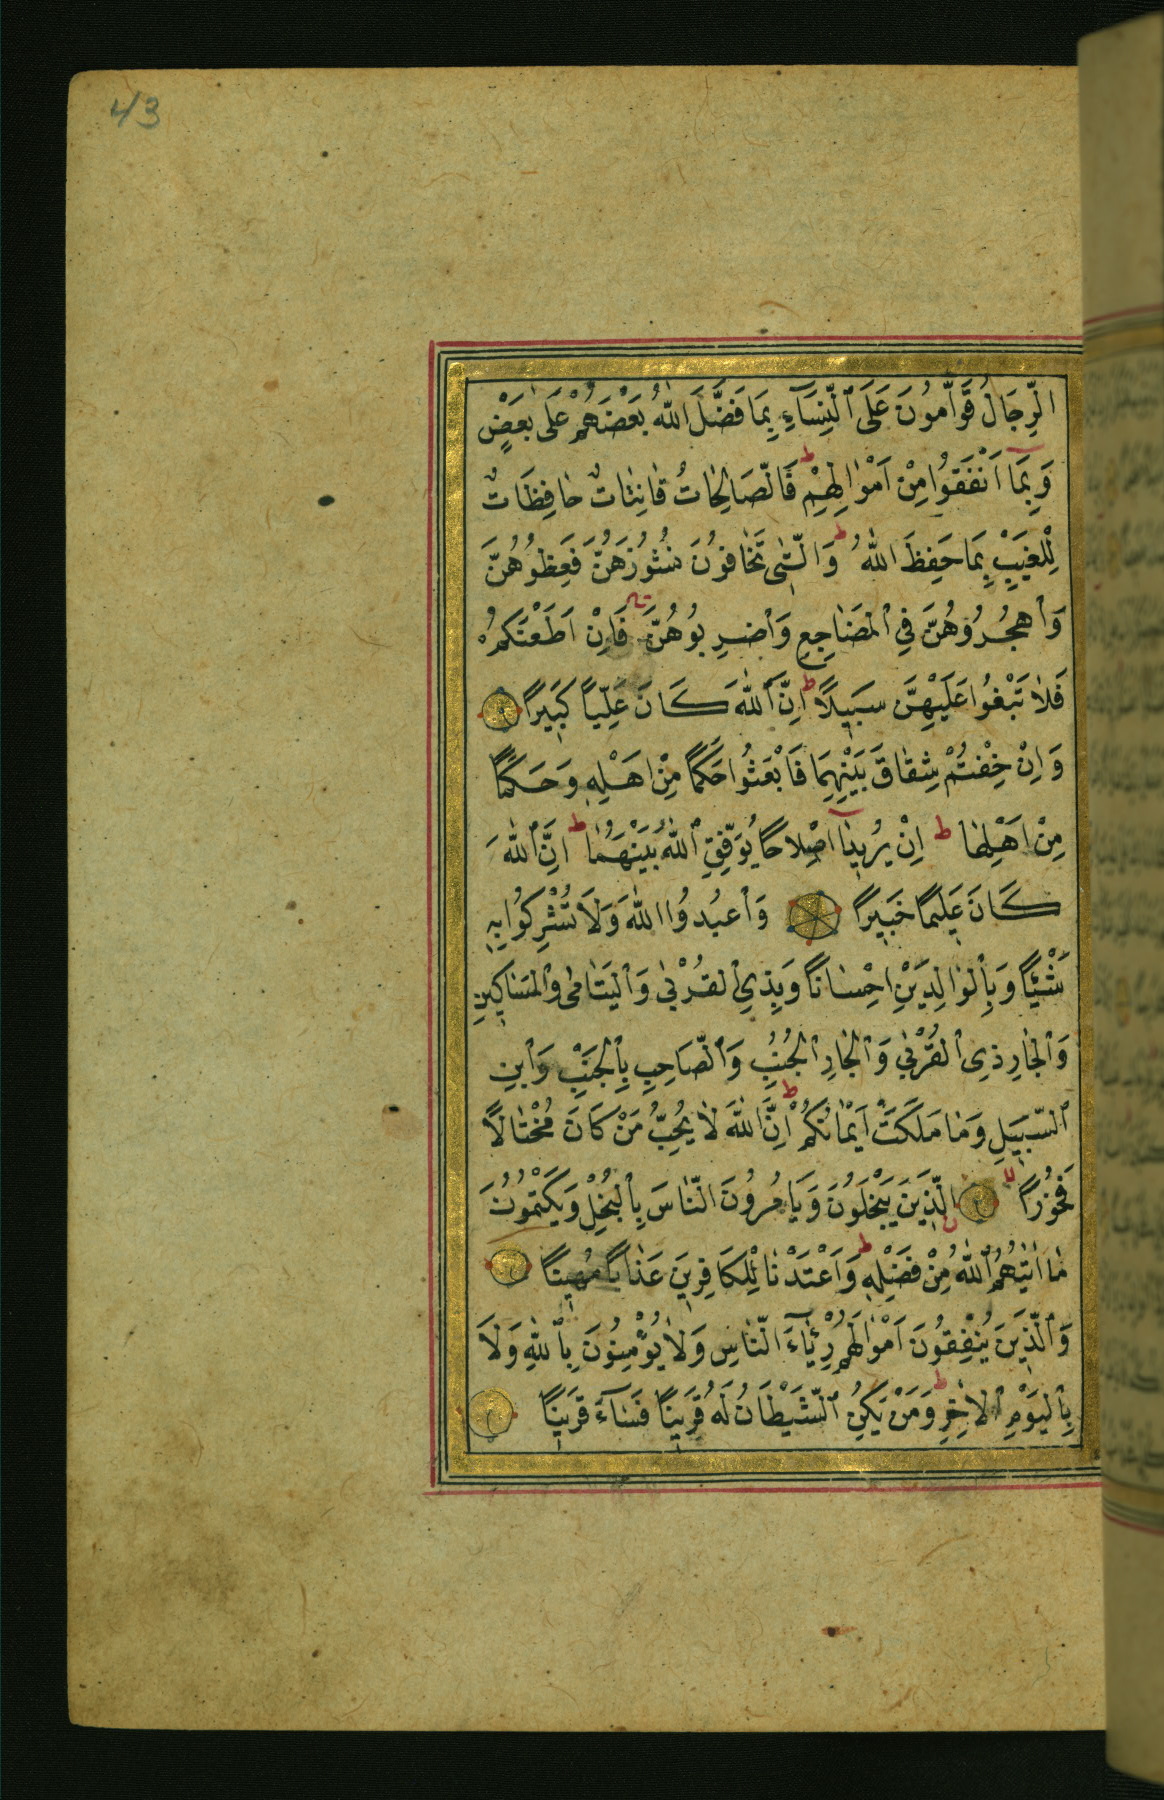 43
الرِّجَالُ قَوَّامُونَ عَلَى ٱلنِّسَآءِ بِمَا فَضَّلَ اللّٰهُ بَعْضَهُمْ عَلٰى بَعْضٍ
وَبِمَآ اَنْفَقُوا مِنْ اَمْوٰالِهِمْ ط فَالصَّالِحٰاتُ قٰانِتٰاتٌ حٰافِظَاتٌ
لِلْغَيْبِ بِمَا حَفِظَ اللّٰهُ ط وَالّٰتٖى تَخٰافُونَ نُشُوزَهُنَّ فَعِظُوهُنَّ
وَاهْجُرُوهُنَّ فِي الْمَضٰاجِعِ وَاضْرِبُوهُنَّ فَاِنْ اَطَعْنَكُمْ
فَلاٰ تَبْغُوا عَلَيْهِنَّ سَبٖيلًا ط اِنَّ اللّٰهَ كَانَ عَلِيّاً كَبٖيرًا
وَاِنْ خِفْتُمْ شِقٰاقَ بَيْنِهِمَا فَابْعَثُوا حَكَمًا مِنْ اَهْلِهٖ وَحَكَمًا
مِنْ اَهْلِهٰا ط اِنْ يُرٖيدٰآ اِصْلاحًا يُوَفِّقِ ٱللّٰهُ بَيْنَهُمٰا ط اِنَّ ٱللّٰهَ
كَانَ عَلٖيمًا خَبٖيرًا وَاعْبُدُوا اللّٰهَ وَلَا تُشْرِكُوا بِهٖ
شَيْئًا وَبِالْوٰالِدَيْنِ اِحْسٰانًا وَبِذِي الْقُرْبٰى وَالْيَتٰامٰى وَالْمَسٰاكٖينِ
وَالْجٰارِ ذِى الْقُرْبٰى وَالْجٰارِ الْجُنُبِ وَالصَّاحِبِ بِالْجَنْبِ وَابْنِ
ٱلسَّبٖيلِ وَمٰا مَلَكَتْ اَيْمٰانُكُمْ ط اِنَّ اللّٰهَ لٰا يُحِبُّ مَنْ كَانَ مُخْتٰالًا
فَخُورًا لا الَّذٖينَ يَبْخَلُونَ وَيَامُرُونَ النّٰاسَ بِالْبُخْلِ وَيَكْتُمُونَ
مٰا اٰتٰيهُمُ ٱللّٰهُ مِنْ فَضْلِهٖ ط وَاَعْتَدْنٰا لِلْكَافِرٖينَ عَذٰابًا مُهٖينًا
وَٱلَّذٖينَ يُنْفِقُونَ اَمْوٰالَهُمْ رِئٰآءَ النّٰاسِ وَلاٰ يُؤْمِنُونَ بِاللّٰهِ وَلاَ
بِالْيَوْمِ الْاٰخِرِ ط وَمَنْ يَكُنِ ٱلشَّيْطَانُ لَهُ قَرٖينًا فَسٰآءَ قَرٖينًا